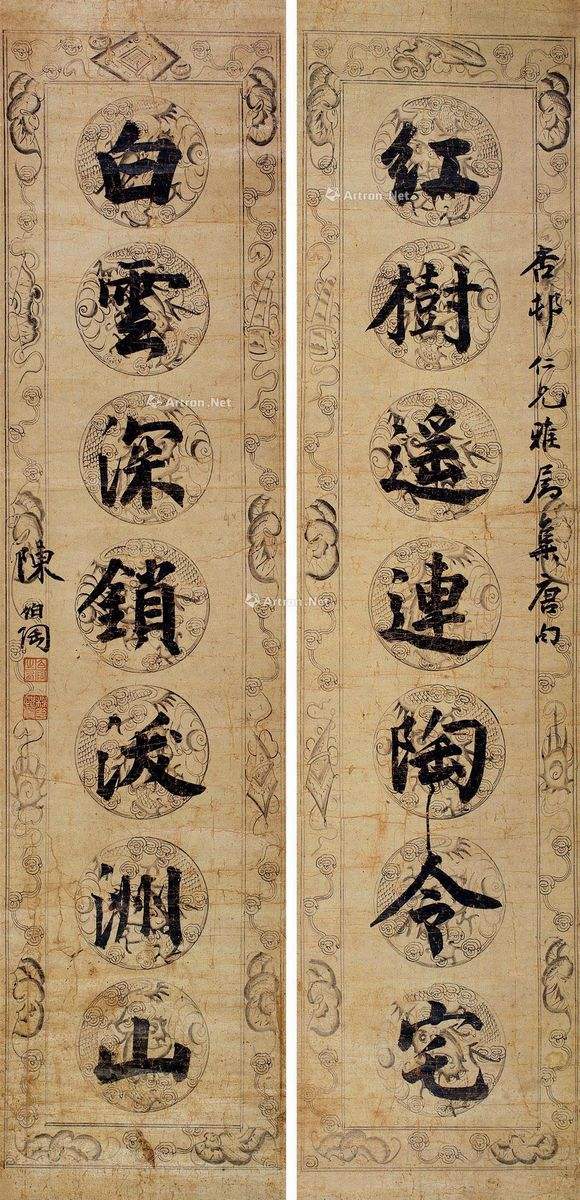 杏邨仁兄雅属集唐句
紅樹遥連陶令宅
白雲深鎖沃洲山
陳伯陶
Artron.Net
Artron.Net
Artron.Net
Artron.Net